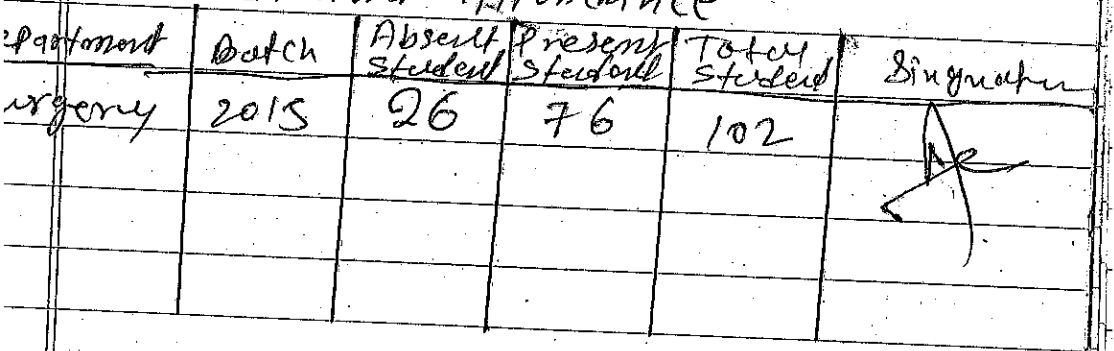 epartment Batch Absent Student Present Student Total Student Singnatur
urgery 2015 26 76 102